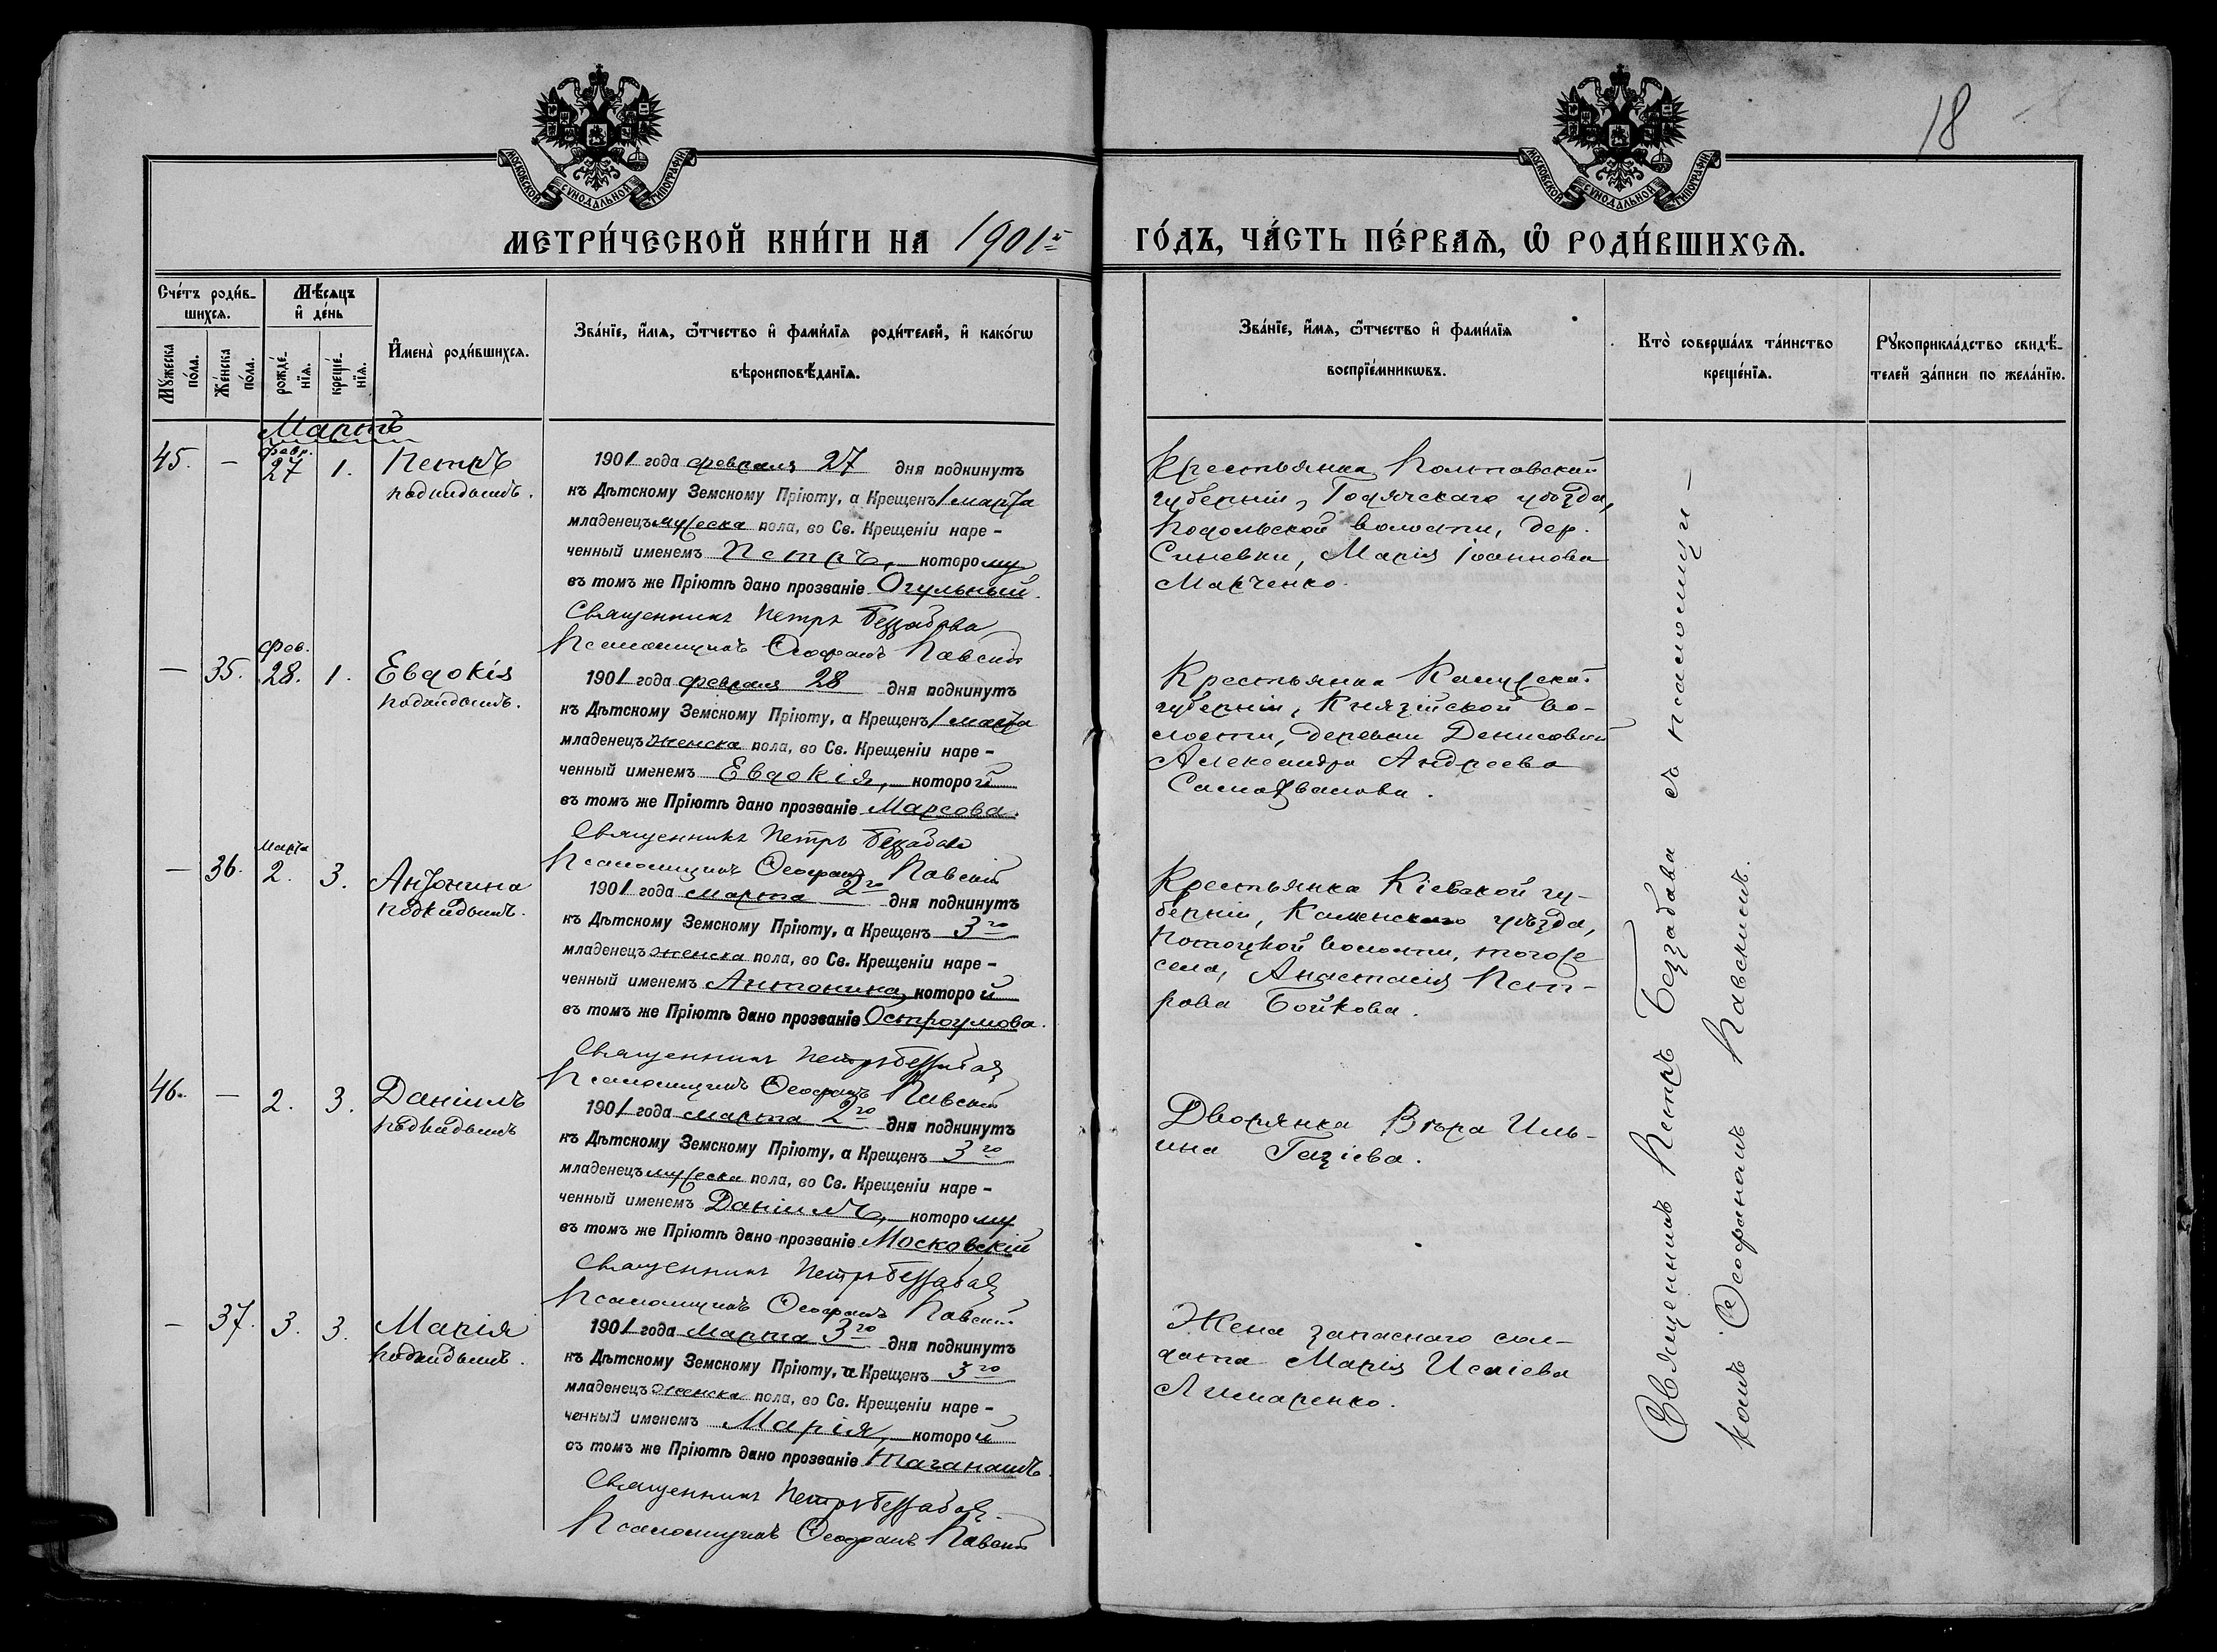 18
МОСКОВСКОЙ СѴНОДАЛЬНОЙ ТИПОГРАФІИ
МОСКОВСКОЙ СѴНОДАЛЬНОЙ ТИПОГРАФІИ
МЕТРИ́ЧЕСКОЙ КНИ́ГИ НА 1901й
ГО́ДЪ, ЧА́СТЬ ПЕ́РВАѦ, Ѡ҆ РОДИ́ВШИХСѦ.
Сче́тъ роди́в-
шихсѧ.
Мꙋжеска по́ла.
Же́нска по́ла.
Мѣ́сѧцъ
и҆ де́нь
рожде́-
нїѧ.
креще́-
нїѧ.
И҆мена̀ роди́вшихсѧ.
Зва́нїе, и҆́мѧ, ѻ҆́тчество и҆ фами́лїѧ роди́телей, и҆ како́гѡ
вѣроисповѣ́данїѧ.
Зва́нїе, и҆́мѧ, ѻ҆́тчество и҆ фами́лїѧ
воспрїе́мникѡвъ.
Кто̀ соверша́лъ та́инство
креще́нїѧ.
Рꙋкоприкла́дство свидѣ́-
телей за́писи по жела́нїю.
Мартъ
45. – Февр. 27 1. Петръ
подкидышъ.
1901 года февраля 27 дня подкинутъ
къ Дѣтскому Земскому Пріюту, а Крещенъ 1 марта
младенецъ мужеска пола, во Св. Крещеніи наре-
ченный именемъ Петръ, которому
въ томъ же Пріютѣ дано прозваніе Огульный.
Священникъ Петръ Беззабава
Псаломщикъ Ѳеофанъ Павскій
Крестьянка Полтавской
губерніи, Гадячскаго уѣзда,
Подольской волости, дер.
Синевки, Марія Іоаннова
Марченко.
– 35. Фев. 28. 1. Евдокія
подкидышъ.
1901 года февраля 28 дня подкинутъ
къ Дѣтскому Земскому Пріюту, а Крещенъ 1 марта
младенецъ женска пола, во Св. Крещеніи наре-
ченный именемъ Евдокія, которой
въ томъ же Пріютѣ дано прозваніе Марсова.
Священникъ Петръ Беззабава
Псаломщикъ Ѳеофанъ Павскій
Крестьянка
губерніи, Князійской во-
лости, деревни Денисовки
Александра Андреева
– 36. Марта 2. 3. Антонина
подкидышъ.
1901 года марта 2го дня подкинутъ
къ Дѣтскому Земскому Пріюту, а Крещенъ 3го
младенецъ женска пола, во Св. Крещеніи наре-
ченный именемъ Антонина, которой
въ томъ же Пріютѣ дано прозваніе Остроумова.
Священникъ Петръ Беззабава
Псаломщикъ Ѳеофанъ Павскій
Крестьянка Кіевской гу-
берніи, уѣзда,
Потоцкой волости, того же
села, Анастасія Пет-
рова Бойкова.
46. – 2. 3. Даніилъ
подкидышъ
1901 года марта 2го дня подкинутъ
къ Дѣтскому Земскому Пріюту, а Крещенъ 3го
младенецъ мужеска пола, во Св. Крещеніи наре-
ченный именемъ Даніилъ, которому
въ томъ же Пріютѣ дано прозваніе Московскій
Священникъ Петръ Беззабава
Псаломщикъ Ѳеофанъ Павскій
Дворянка Вѣра Иль-
ина Газіева.
– 37. 3. 3. Марія
подкидышъ.
1901 года Марта 3го дня подкинутъ
къ Дѣтскому Земскому Пріюту, а Крещенъ 3го
младенецъ женска пола, во Св. Крещеніи наре-
ченный именемъ Марія, которой
въ томъ же Пріютѣ дано прозваніе Таганашъ.
Священникъ Петръ Беззабава
Псаломщикъ Ѳеофанъ Павскій
Жена запаснаго сол-
дата Марія Исаіева
Лимаренко.
Священникъ Петръ Беззабава съ псаломщи-
комъ Ѳеофаномъ Павскимъ.